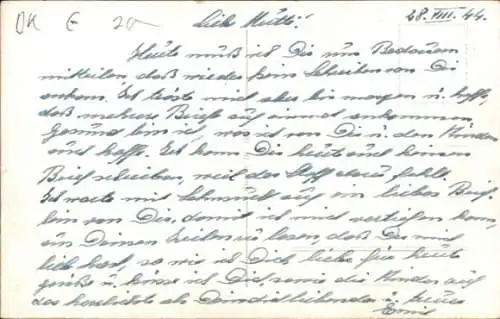 DK E 20
28.VIII.44.
Liebe Mutti!
Heute muß ich Dir zum Bedauern
mitteilen, daß wieder kein Schreiben von Dir
ankam. Ich tröste mich aber bis morgen u. hoffe,
daß mehrere Briefe auf einmal ankommen.
Gesund bin ich, was ich von Dir u. den Kindern
auch hoffe. Ich kann Dir heute auch keinen
Brief schreiben, weil der Stoff dazu fehlt.
Ich warte mit Sehnsucht auf ein liebes Brief-
lein von Dir, damit ich mich vertiefen kann,
in Deinen Zeilen zu lesen, daß Du mich
lieb hast, so wie ich Dich liebe für heute
grüße u. küsse ich Dich, sowie die Kinder auf
das herzlichste als Dein dich liebender u. treuer
Emil